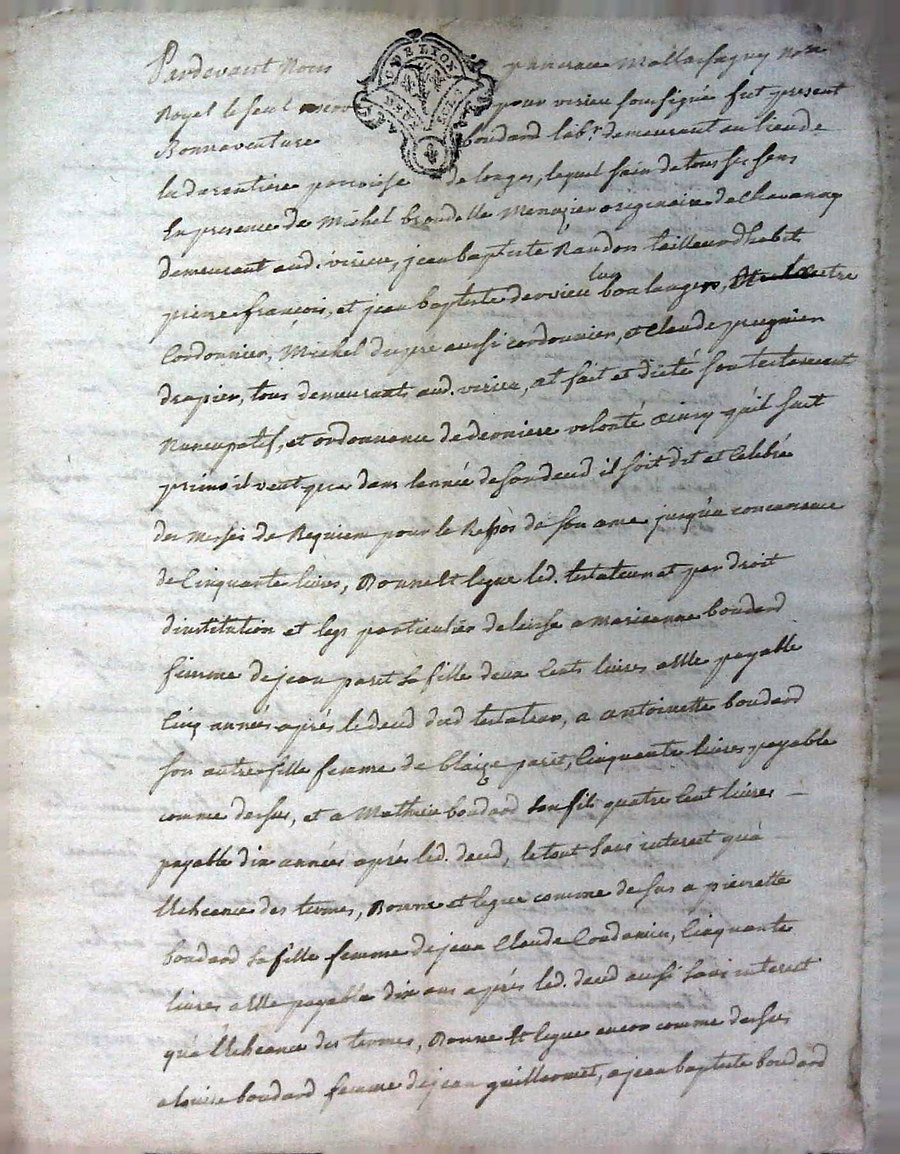 Pardevant Nous pancrace Mallassagny Non
Royal le seul pour virieu soussigné fut present
Bonnaventure boudard lab.r demeurant au lieu de
la darentiere parroisse de longes, lequel sain de tous ses sens
En presence de Michel Menuzier originaire de Chavanay
demeurant aud. virieu, jean baptiste Randon tailleur d'habits
pierre françois, et jean baptiste dervieu boulangers,
Cordonnier, Michel dupré aussi cordonnier, et Claude prugnier
drapier, tous demeurants aud. virieu, at fait et dicté son testament
Nuncupatif, et ordonnance de derniere volonté ainsy qu'il suit
primo il veut que dans l'année de son deced il soit dit et celebré
des Messes de Requiem pour le Repos de son ame jusqu'a concurrance
de Cinquante livres, Donne et legue led. testateur et par droit
d'institution et legs particulier delaisse a Marieanne boudard
femme de jean paret sa fille deux Cents livres a elle payable
Cinq années après le deced dud testateur, a antoinette boudard
son autre fille femme de blaize paret, Cinquante livres payable
comme dessus, et a Mathieu boudard son fils quatre Cent livres
payable dix années après led. deced, le tout sans interest qu'a
l'Echeance des termes, Donne et legue comme dessus a pierrette
boudard sa fille femme de jean Claude Cinquante
livres a elle payable dix ans après led. deced aussi sans interest
qu'a l'Echeance des termes, Donne et legue encor comme dessus
a louise boudard femme de jean guillermet, a jean baptiste boudard
G. DE LYON